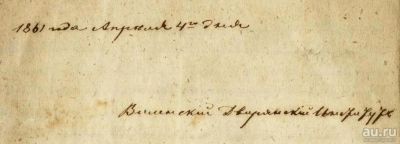 1861 года Апреля 4го дня
Виленский Дворянский Институтъ
au.ru